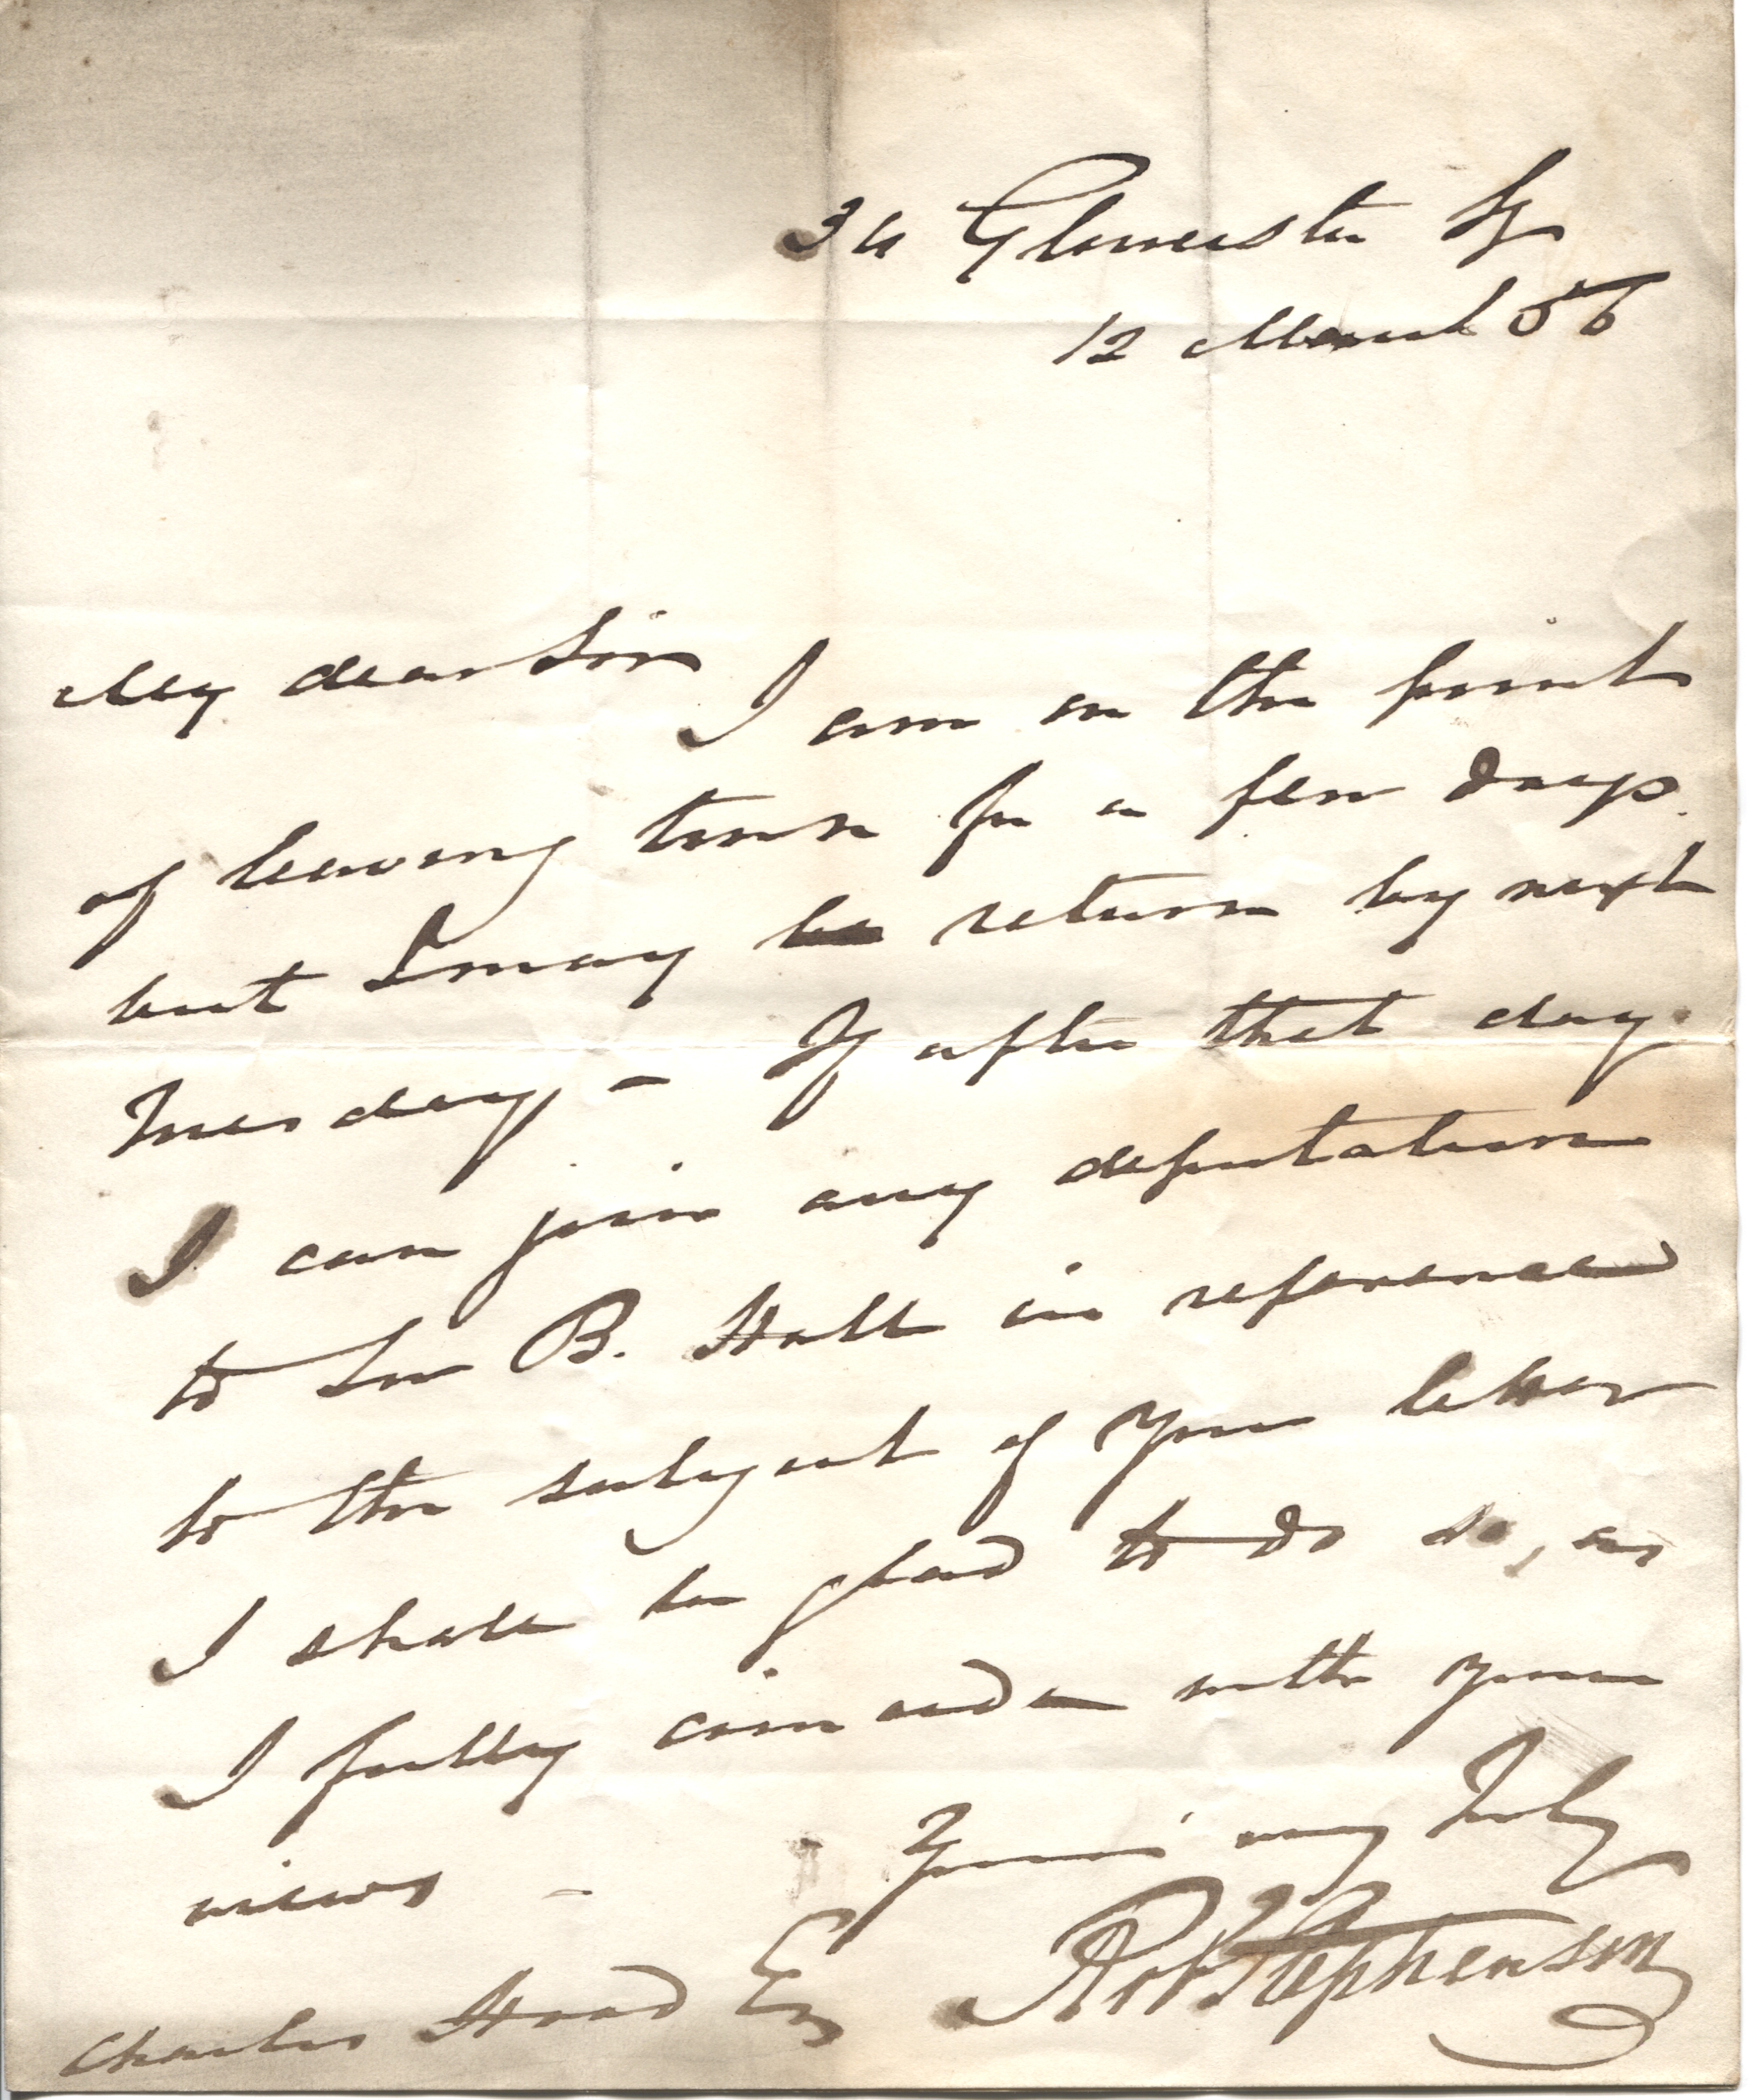 34 Gloucester Sq
12 March 56
My dear Sir
I am on the point
of leaving town for a few days
but I may be return by next
Tuesday – If after that day
I can join any deputation
to Sir B. Hall in reference
to the subject of your letter
I shall be glad to do so, as
I fully coincide with your
views –
Yours very truly
Rob Stephenson
Charles Hood Esq